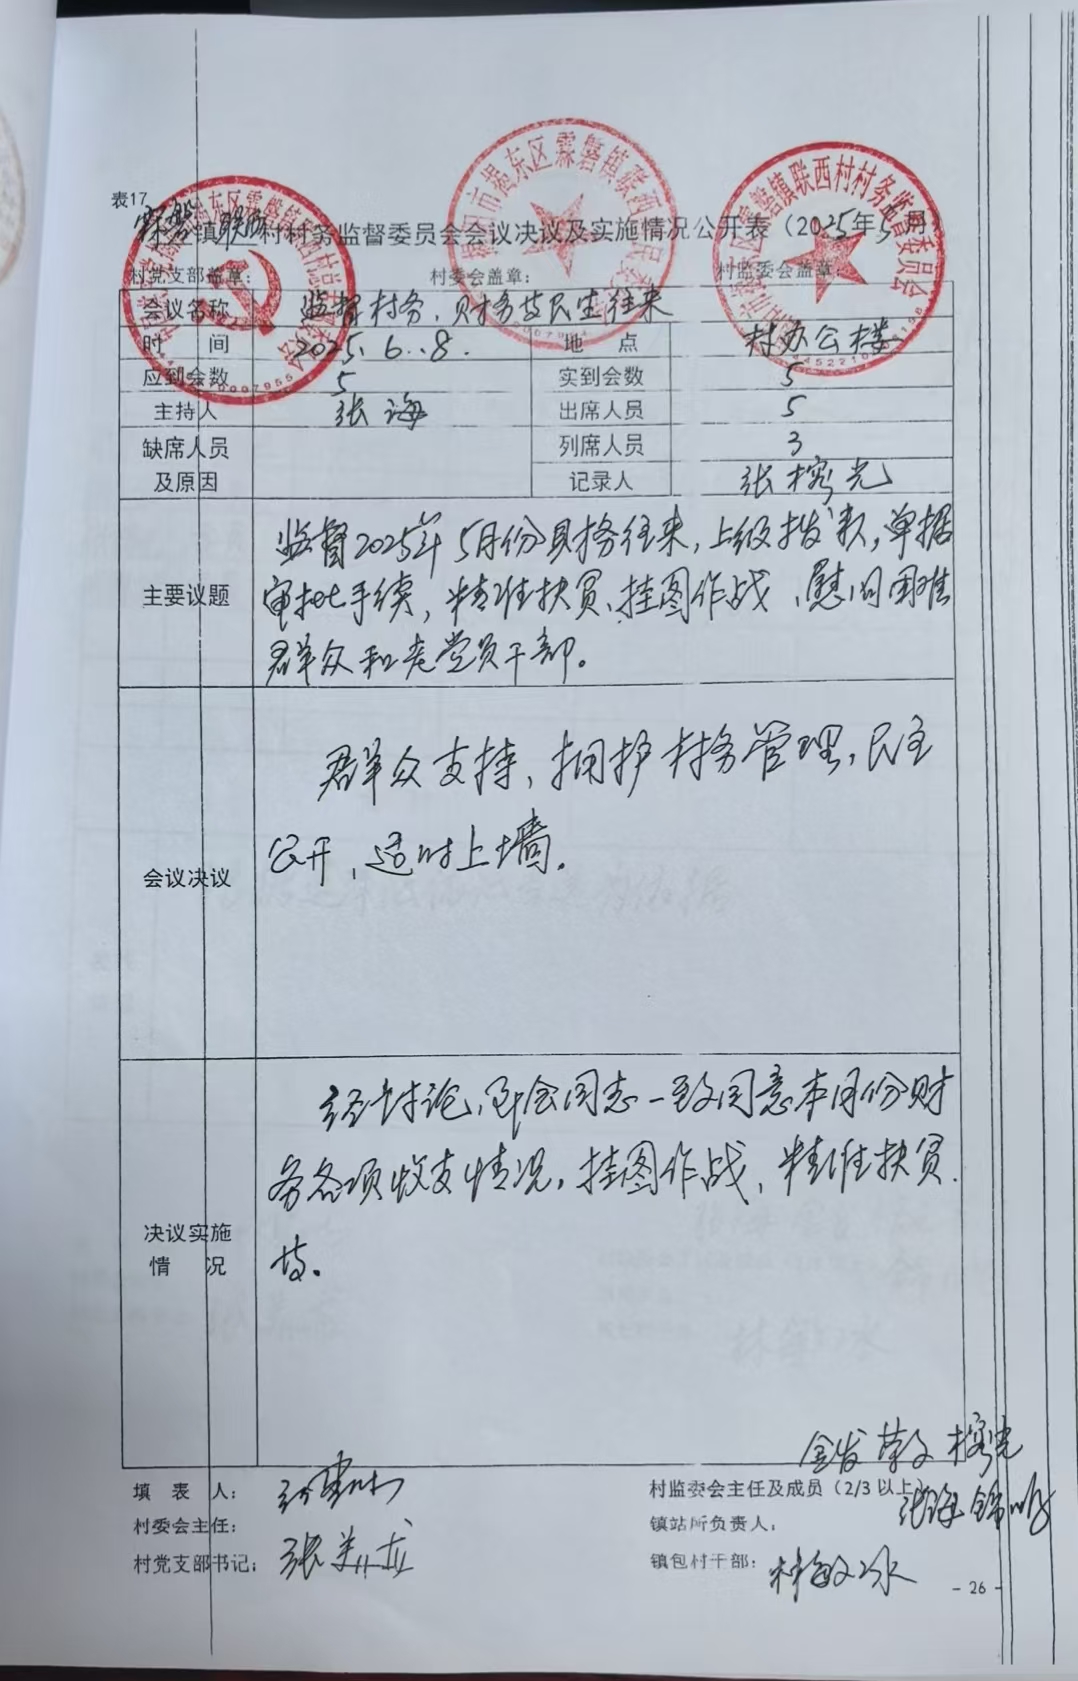 表17
霖磐镇联西村村务监督委员会会议决议及实施情况公开表（2025年5月
村党支部盖章： 村委会盖章： 村监委会盖章：
会议名称 监督村务、财务及民生往来
时 间 2025.6.8. 地 点 村办公楼
应到会数 5 实到会数 5
主持人 张海 出席人员 5
缺席人员及原因 列席人员 3
记录人 张榕光
主要议题
监督2025年5月份财务往来，上级拨款，单据
审批手续，精准扶贫、挂图作战、慰问困难
群众和老党员干部。
会议决议
群众支持，拥护村务管理，民主
公开，适时上墙。
决议实施情况
经讨论，到会同志一致同意本月份财
务各项收支情况，挂图作战，精准扶贫.
填 表 人：
村委会主任：
村党支部书记： 张美龙
村监委会主任及成员（2/3以上） 榕光 张海
镇站所负责人，
镇包村干部： 林敏冰
- 26 -